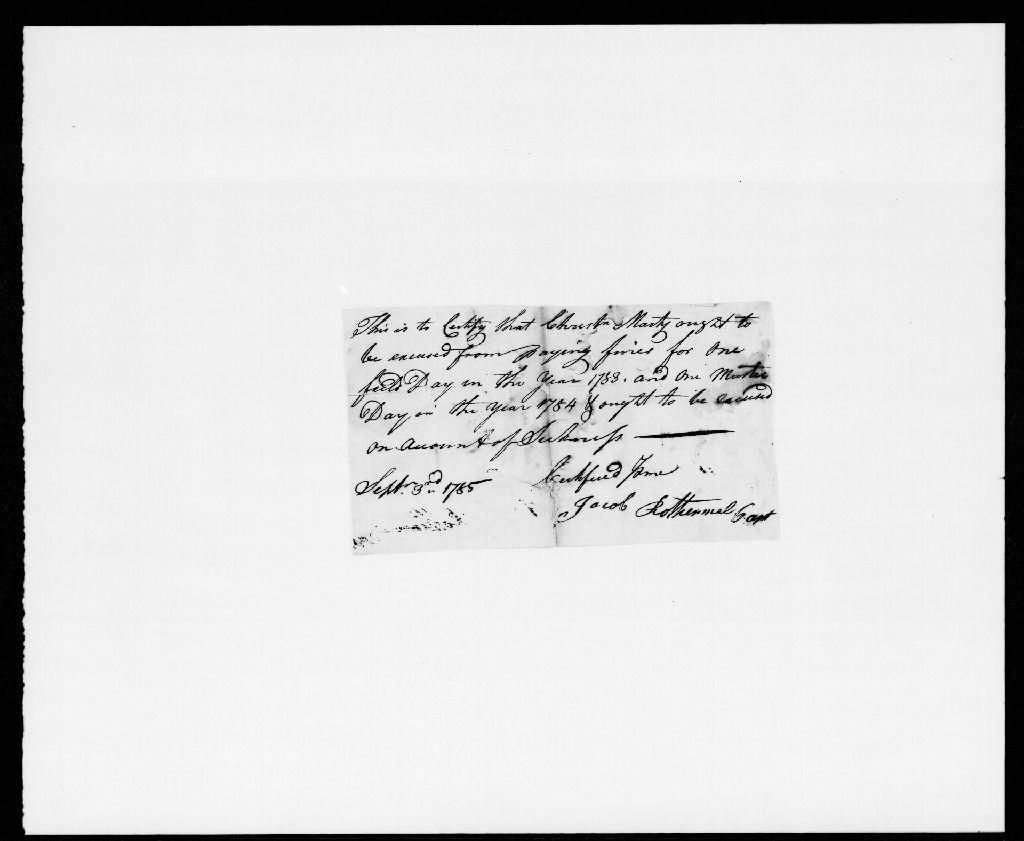 This is to Certify that Christn Marty ought to
be excused from paying fines for one
field Day in the Year 1783. and one Muster
Day in the Year 1784 & ought to be excused
on account of Sickness
Septr. 3rd 1785
Certified Pr me
Jacob Rothermel Capt